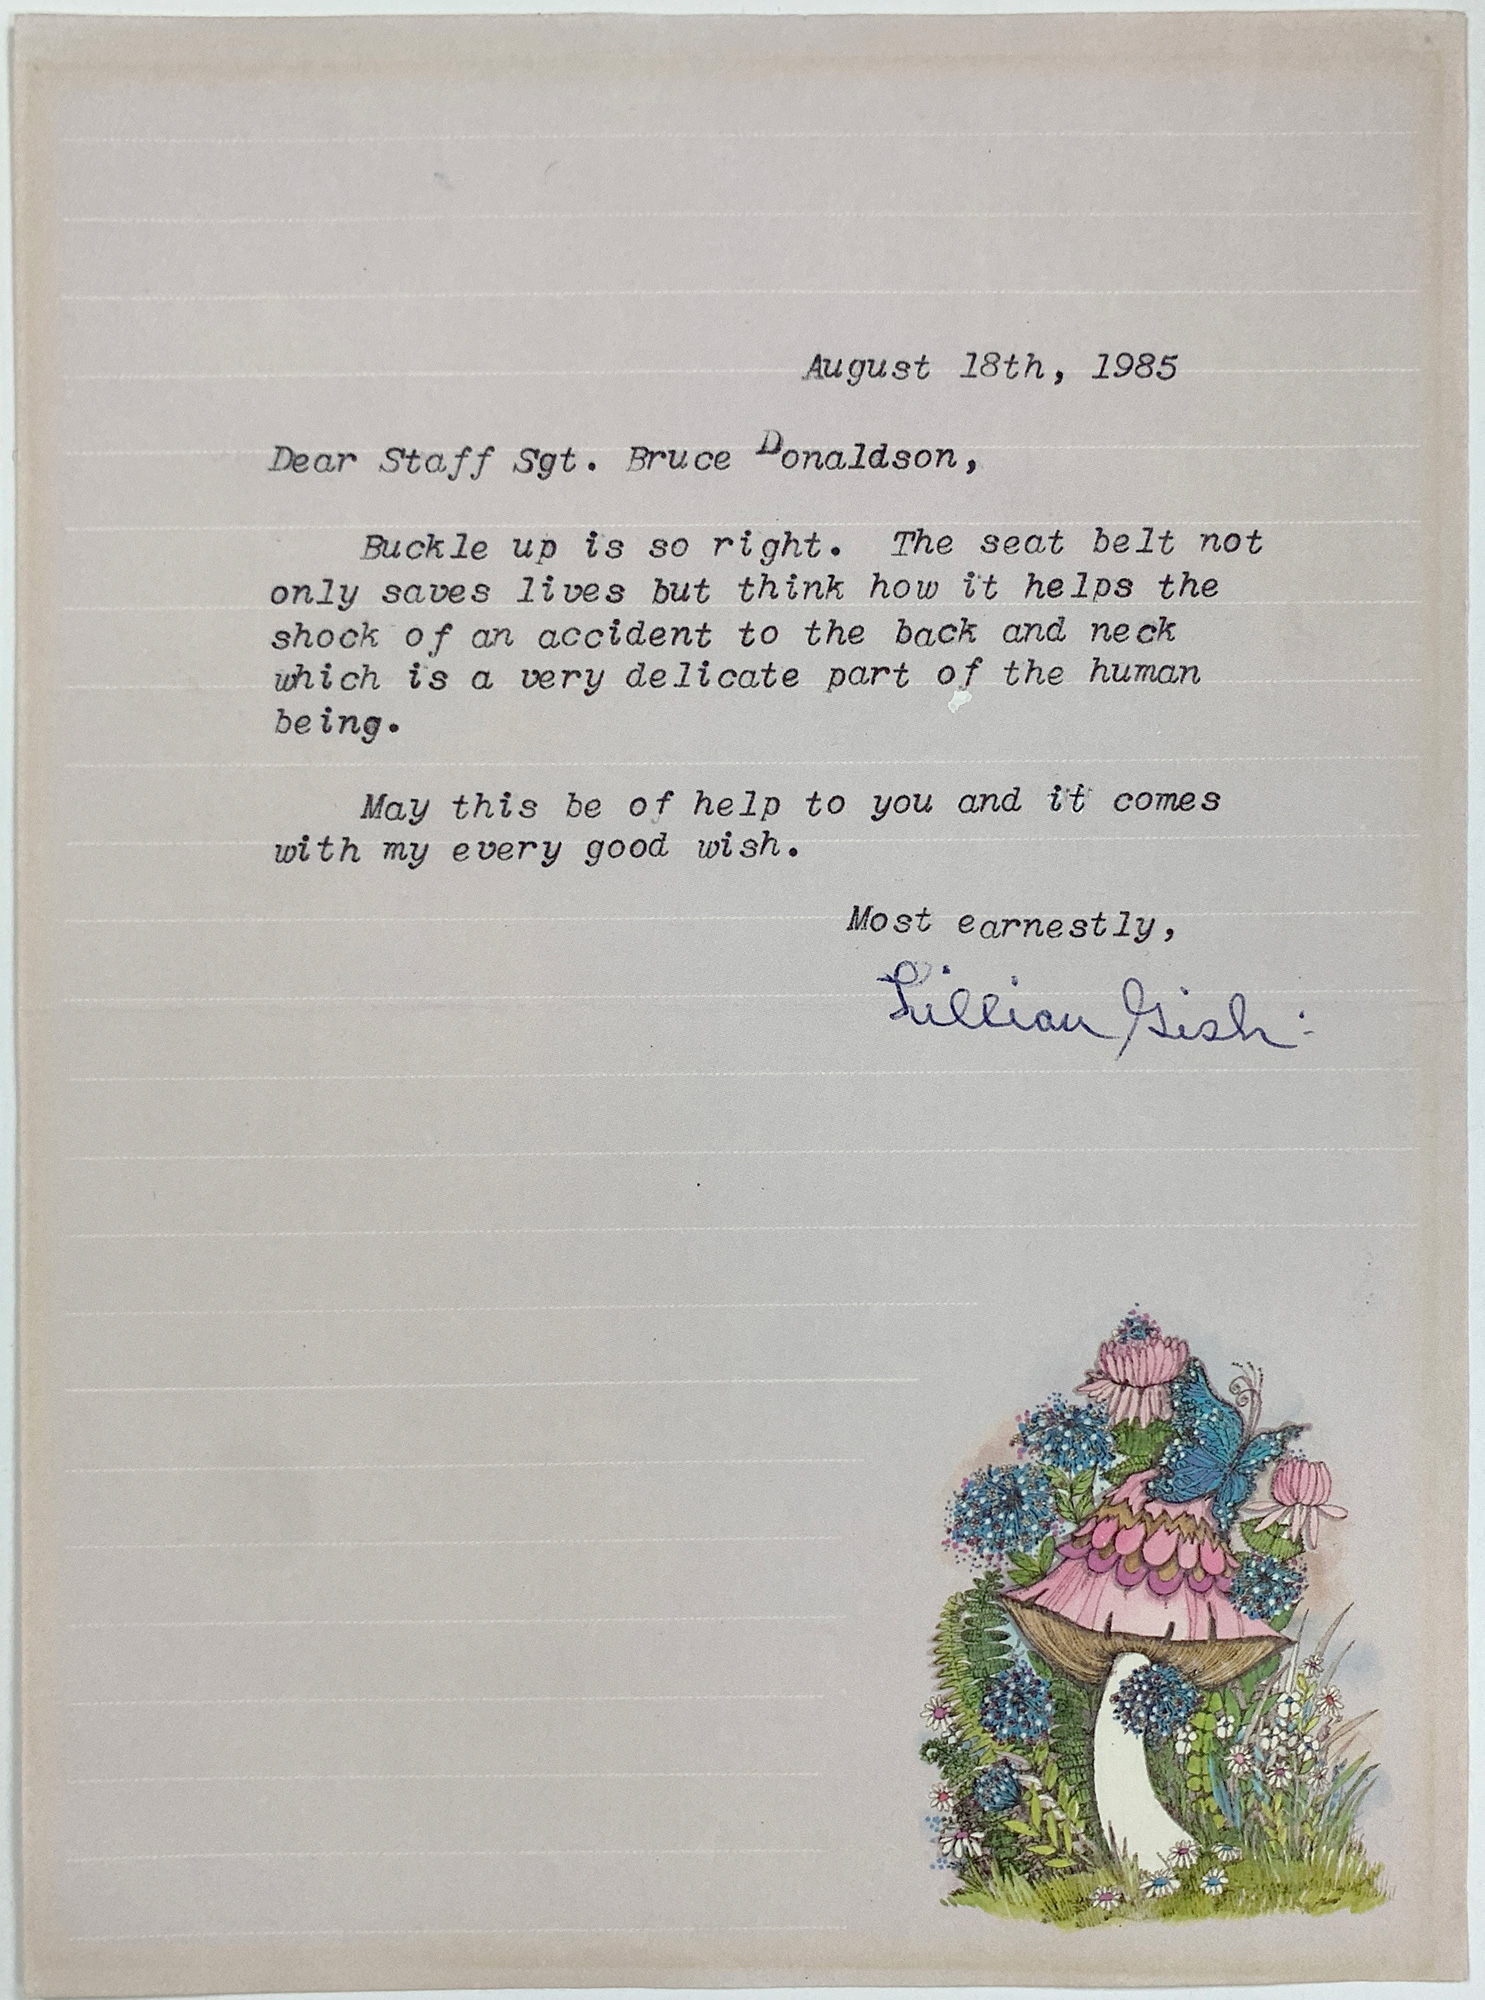 August 18th, 1985
Dear Staff Sgt. Bruce Donaldson,
Buckle up is so right. The seat belt not
only saves lives but think how it helps the
shock of an accident to the back and neck
which is a very delicate part of the human
being.
May this be of help to you and it comes
with my every good wish.
Most earnestly,
Lillian Gish